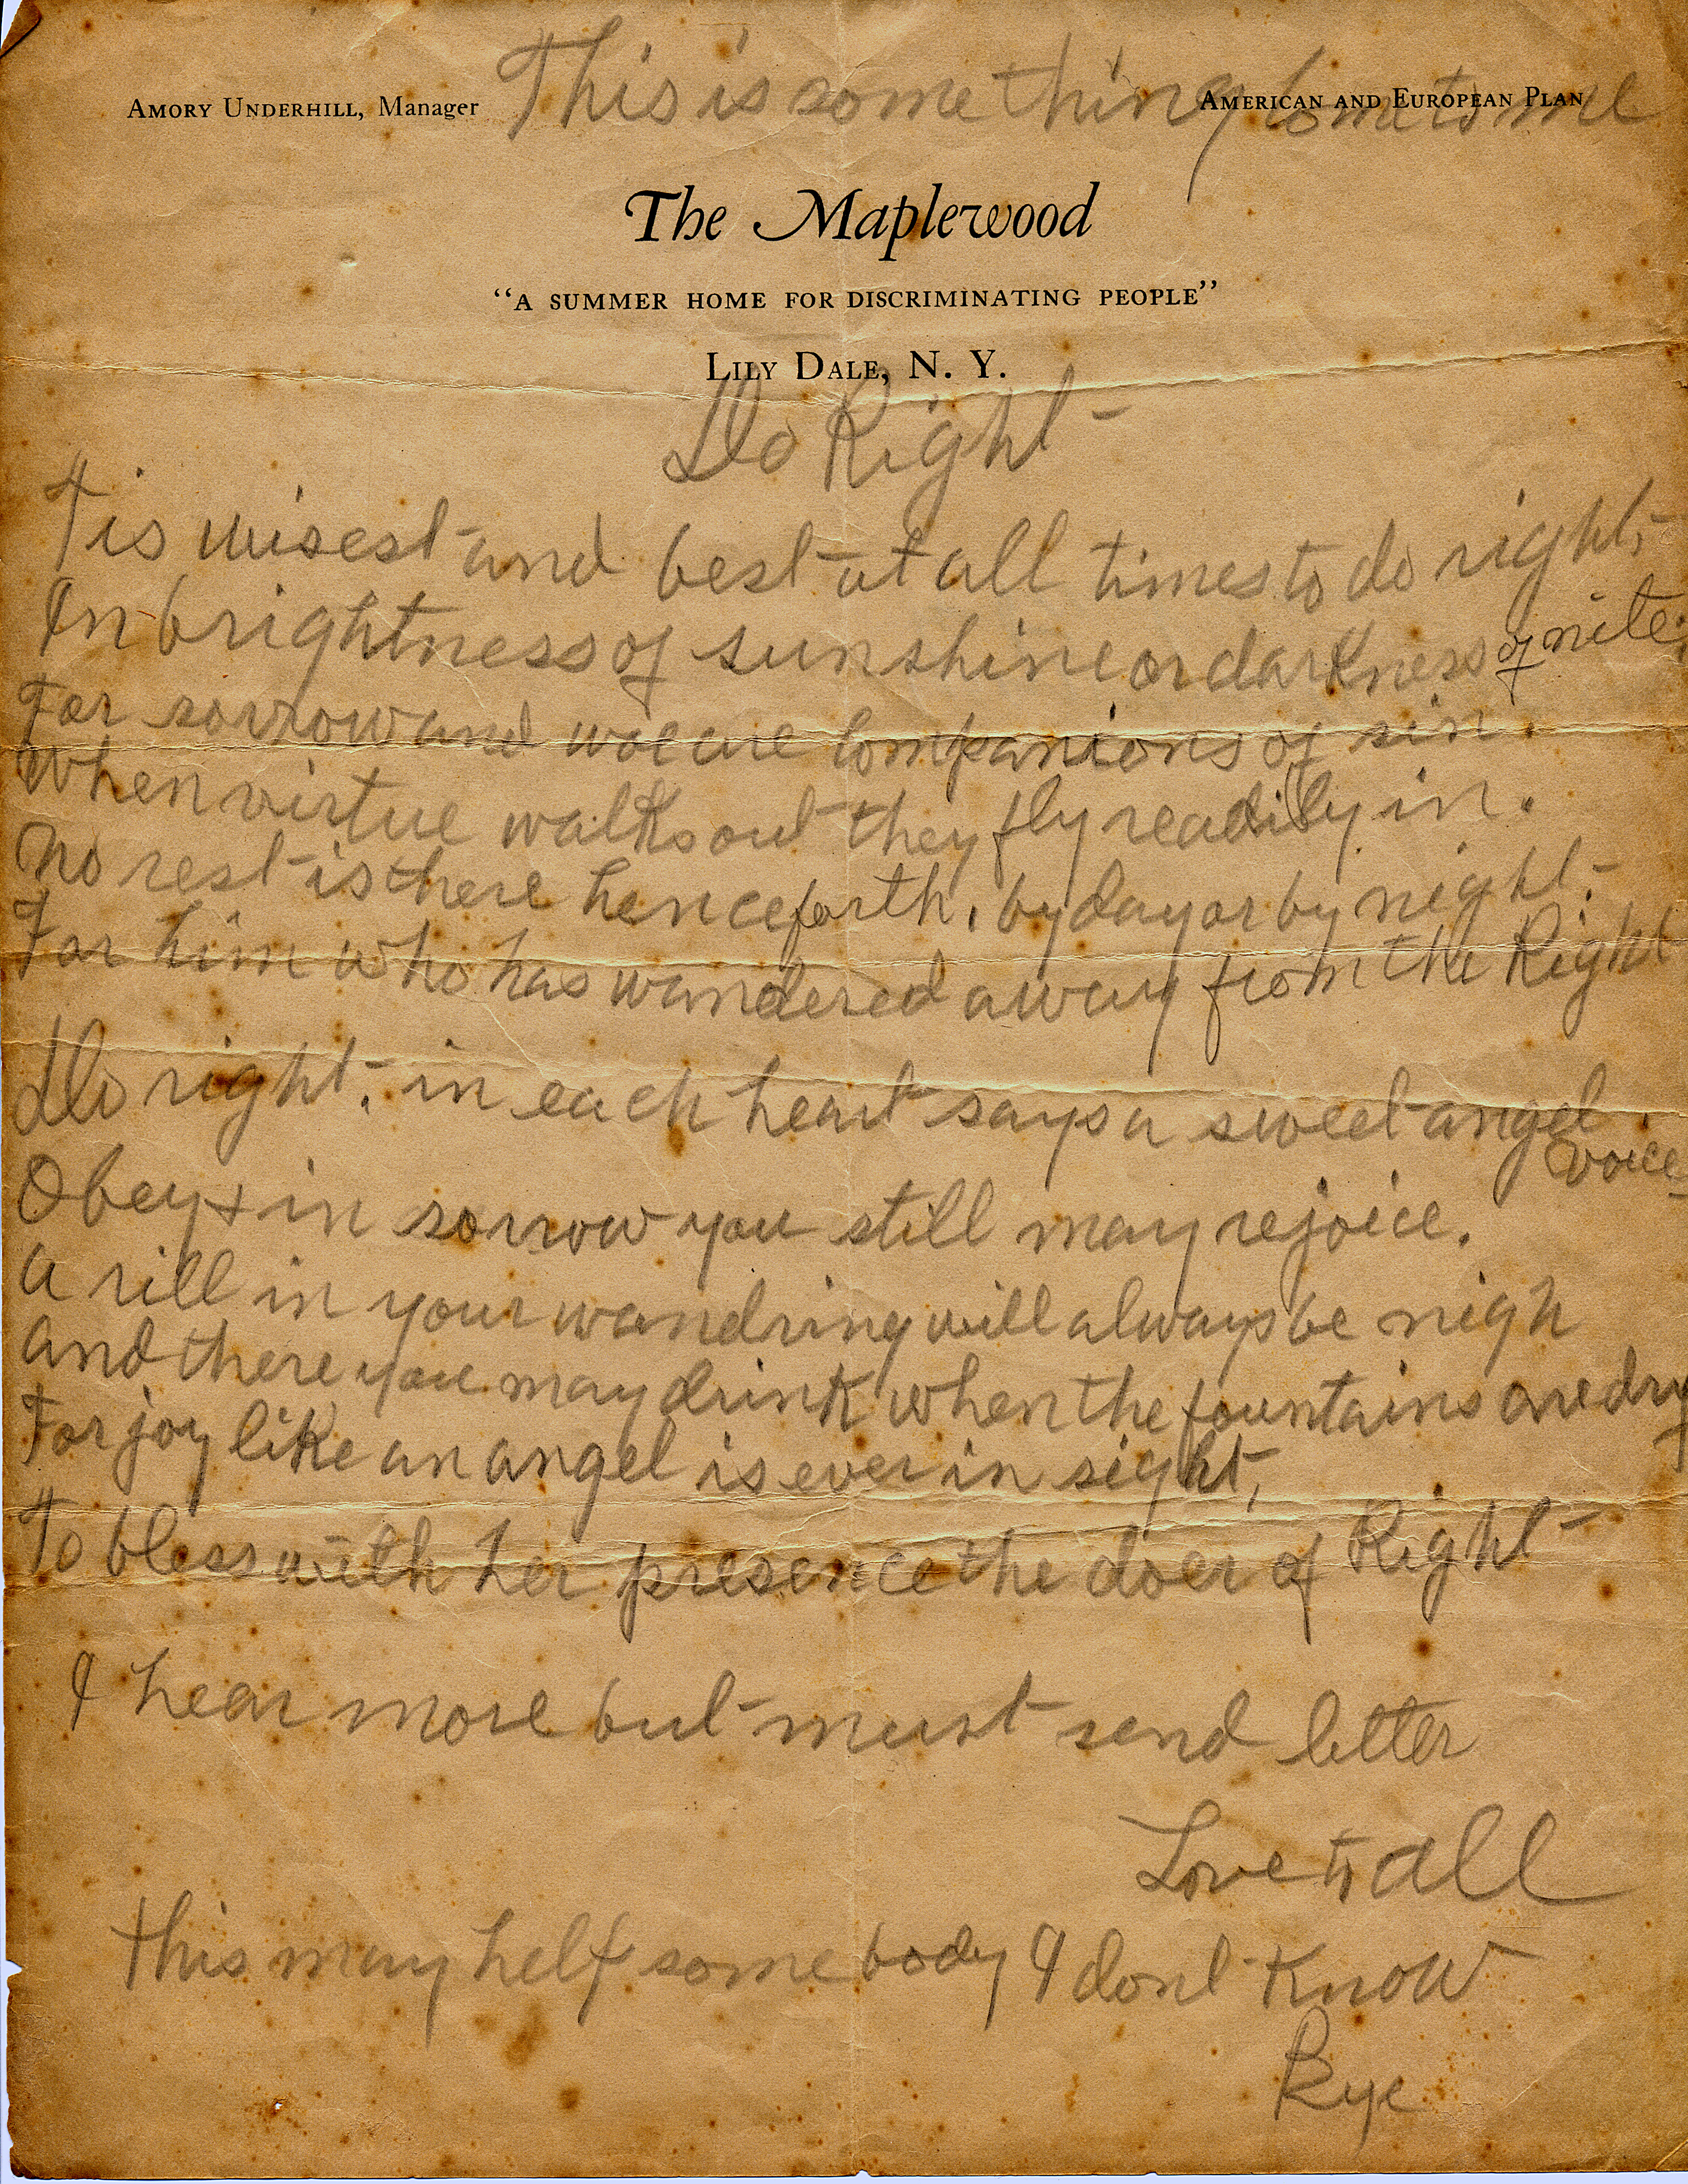 This is something comes to me
Amory Underhill, Manager
American and European Plan
The Maplewood
“A summer home for discriminating people”
Lily Dale, N. Y.
Do Right
Tis wisest and best at all times to do right,
In brightness of sunshine or darkness of nite;
For sorrow and woe are companions of sin.
When virtue walks out they fly readily in.
No rest is there henceforth, by day or by night.
For him who has wandered away from the Right
Do right, in each heart says a sweet angel
voice
Obey + in sorrow you still may rejoice.
A rill in your wandring will always be nigh
And there you may drink when the fountains are dry
For joy like an angel is ever in sight,
To bless with her presence the doer of Right
I hear more but must send letter
Love to all
This may help some body I dont know